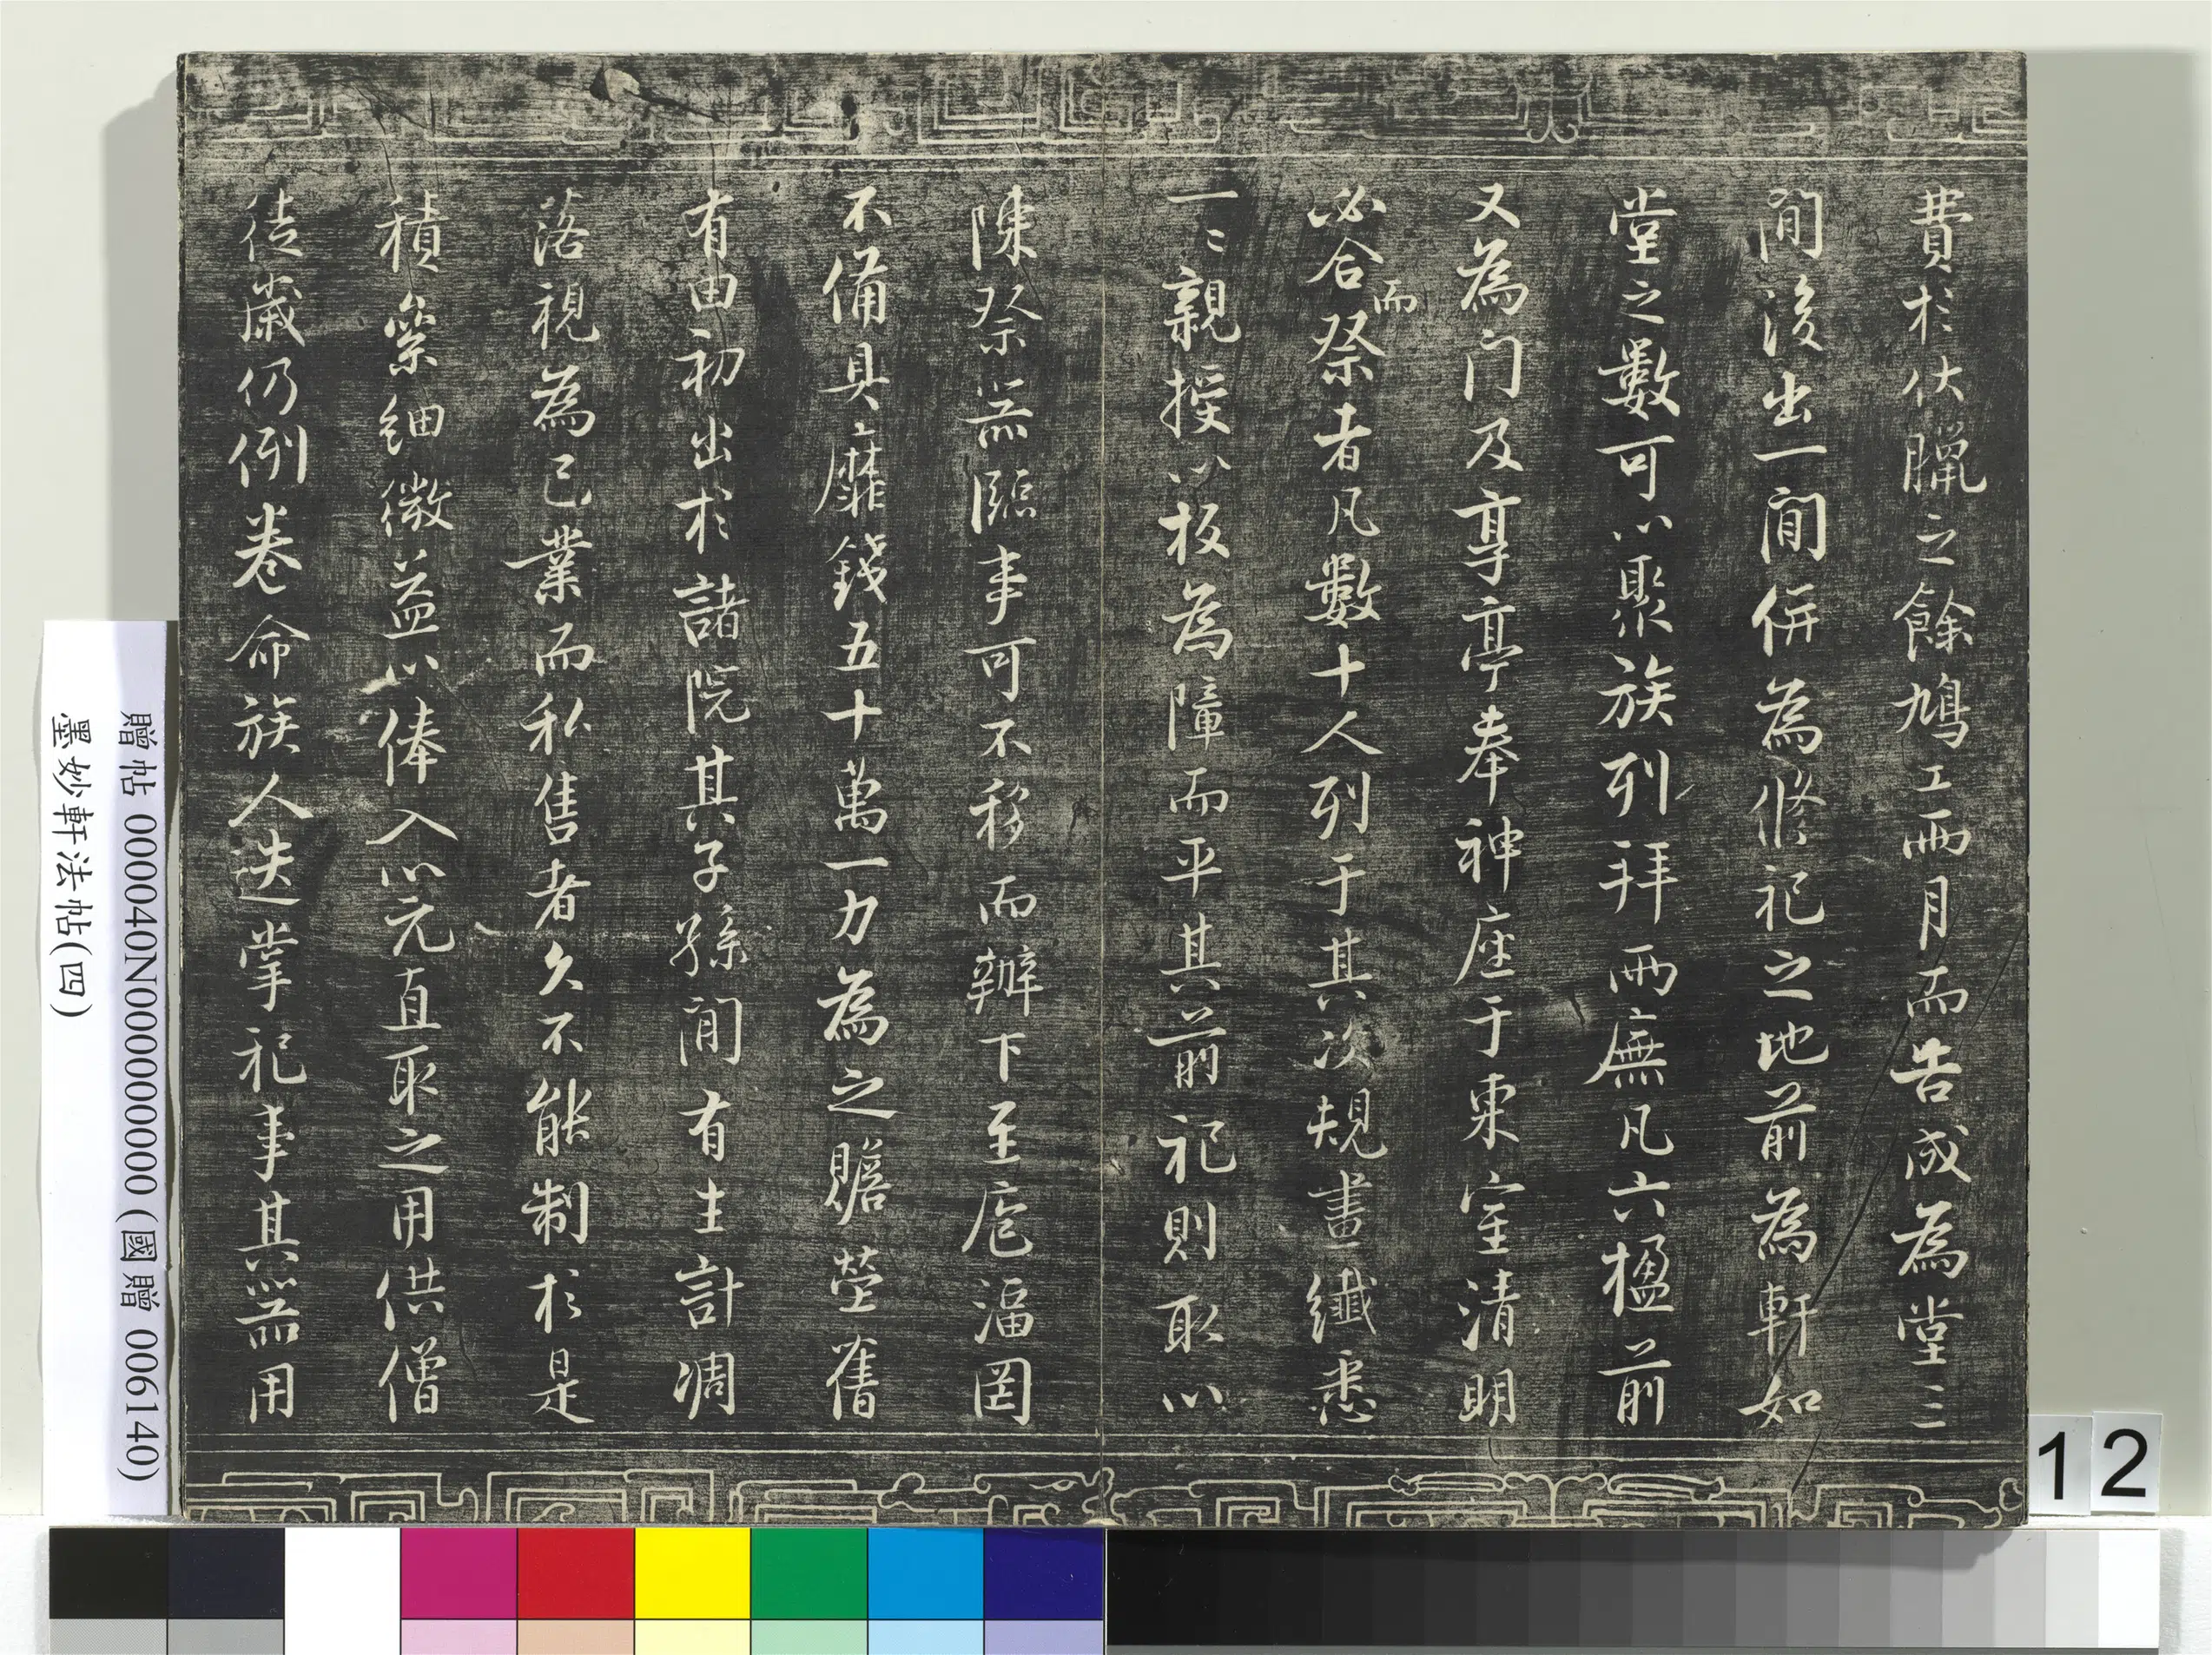 費於伏臘之餘鳩工兩月而告成為堂三
間後出一間併為脩祀之地前為軒如
堂之數可以聚族列拜兩廡凡六楹前
又為门及享亭奉神座于東室清明
必合而祭者凡數十人列于其次規畫纖悉
一〻親授以板為障而平其前祀則取以
陳祭器臨事可不移而辦下至庖湢罔
不備具靡錢五十萬一力為之贍塋舊
有由初出於諸院其子孫間有生計凋
落視為己業而私售者久不能制於是
積絫細微益以俸入以元直取之用供僧
徒歲仍例卷命族人迭掌祀事其器用
贈帖 000040N000000000 (國贈 006140)
墨妙軒法帖(四)
12